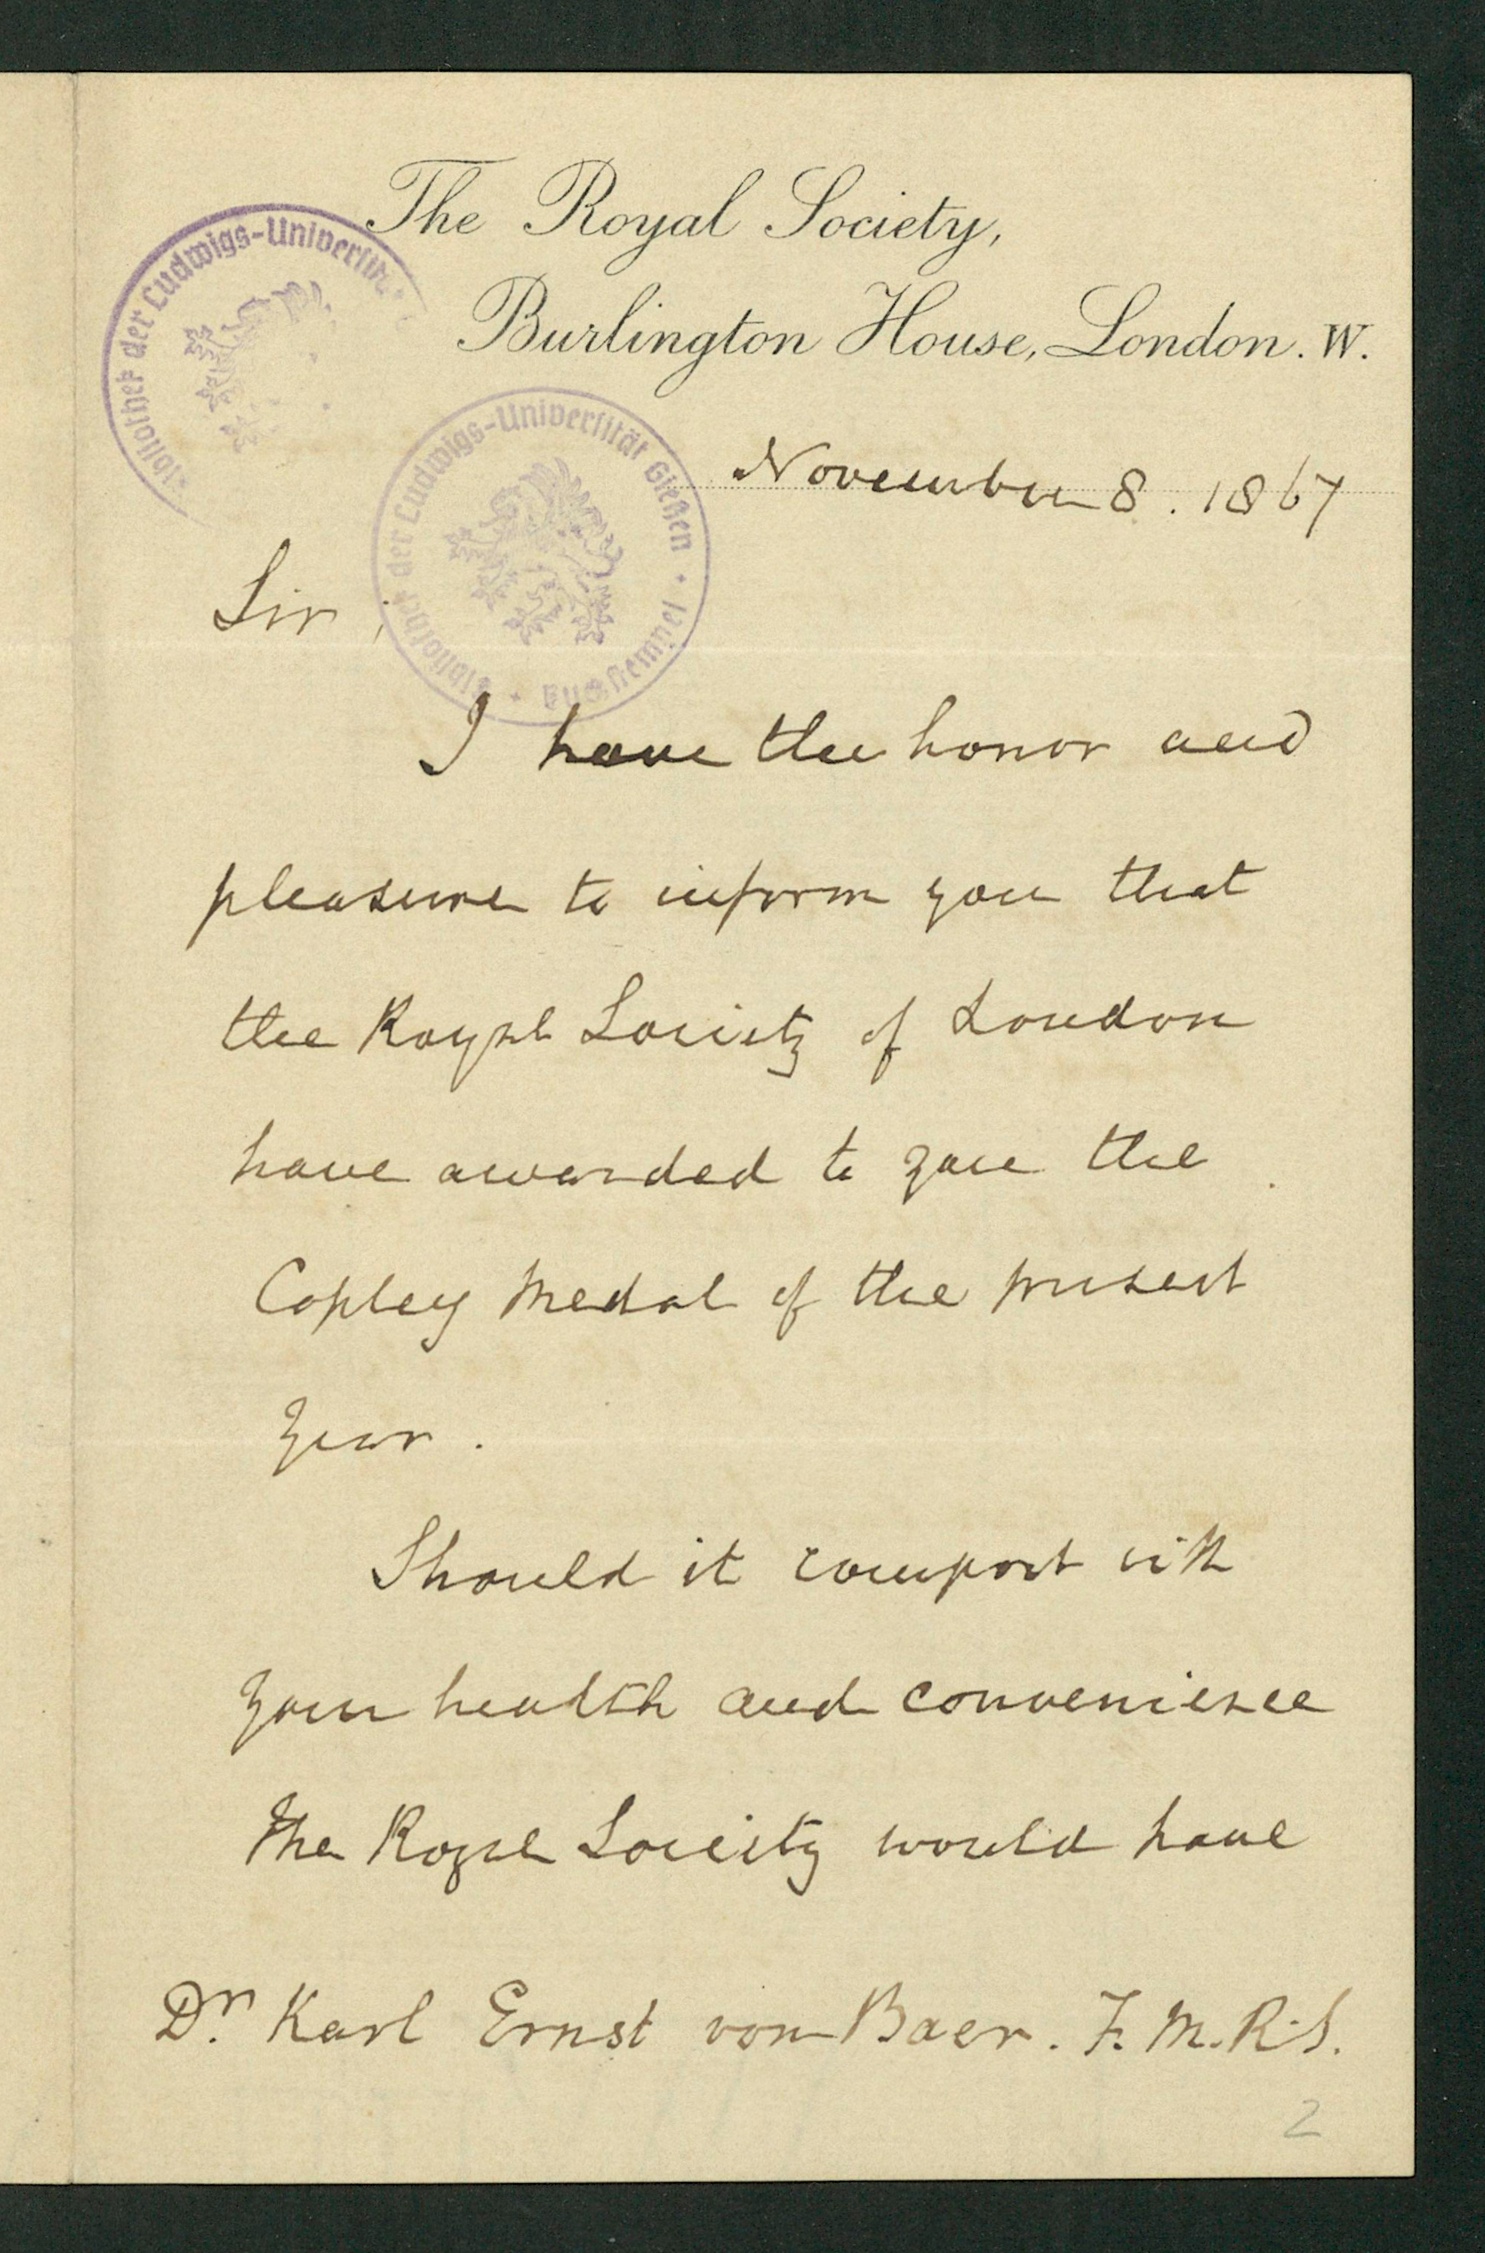 The Royal Society,
Burlington House, London. W.
Bibliothek der Ludwigs-Universit
Bibliothek der Ludwigs-Universität Gießen · Ausschußstempel ·
November 8. 1867
Sir,
I have the honor and
pleasure to inform you that
the Royal Society of London
have awarded to you the
Copley Medal of the present
year.
Should it comport with
your health and convenience
the Royal Society would have
Dr. Karl Ernst von Baer. F.M.R.S.
2